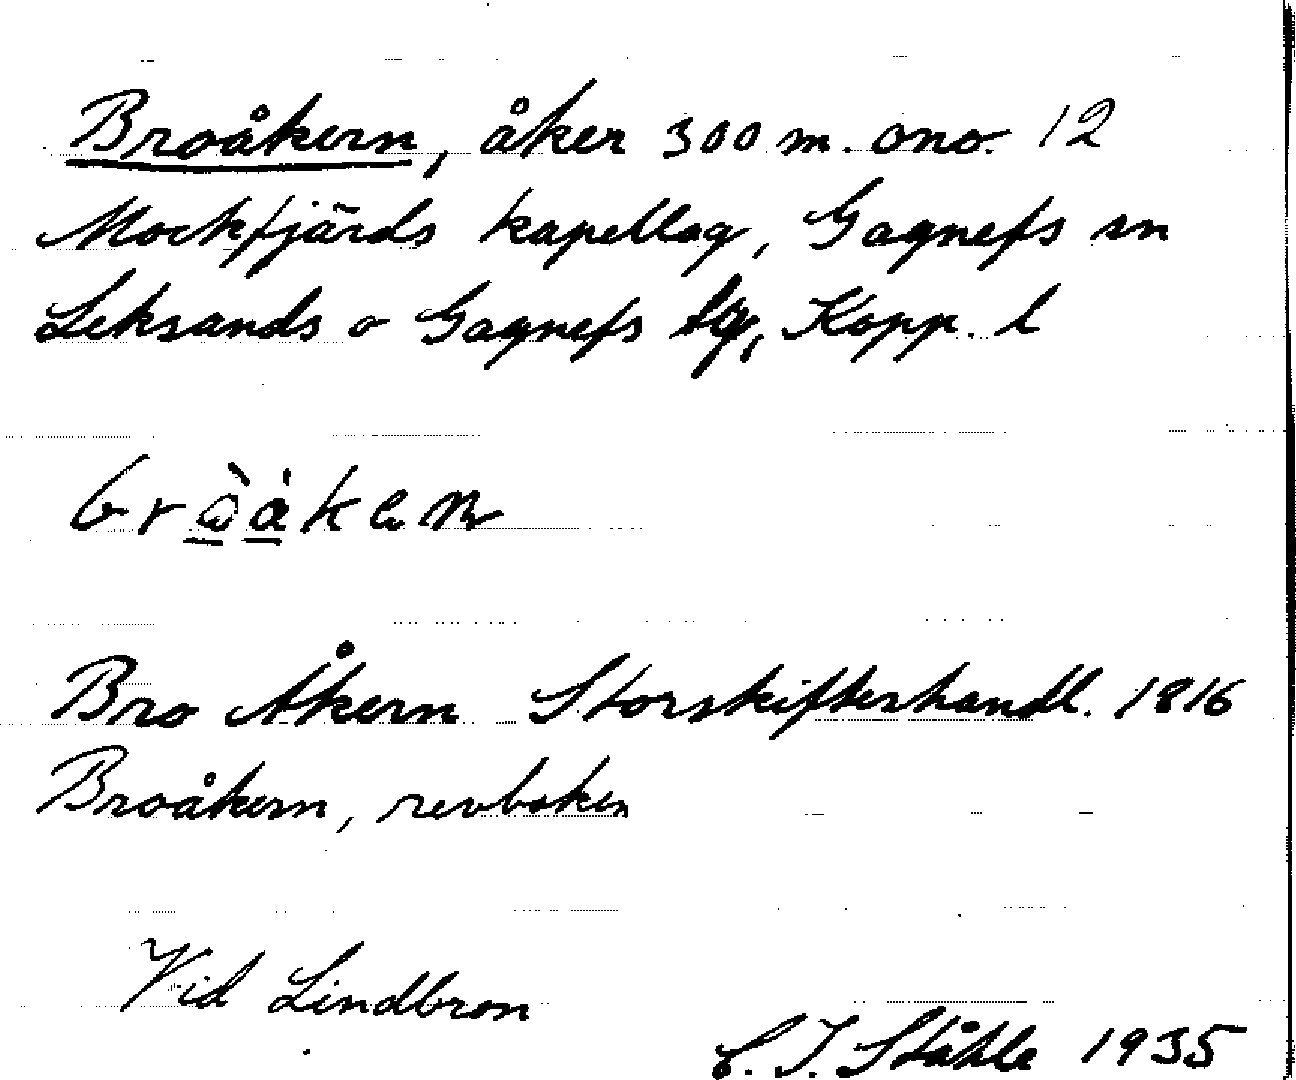 Broåkern, åker 300 m. ono. 12
Mockfjärds kapellag, Gagnefs sn
Leksands o Gagnefs tg, Kopp. l
Bro Åkern Storskifterhandl. 1816
Broåkern, revboken
Vid Lindbron
C. I. Ståhle 1935